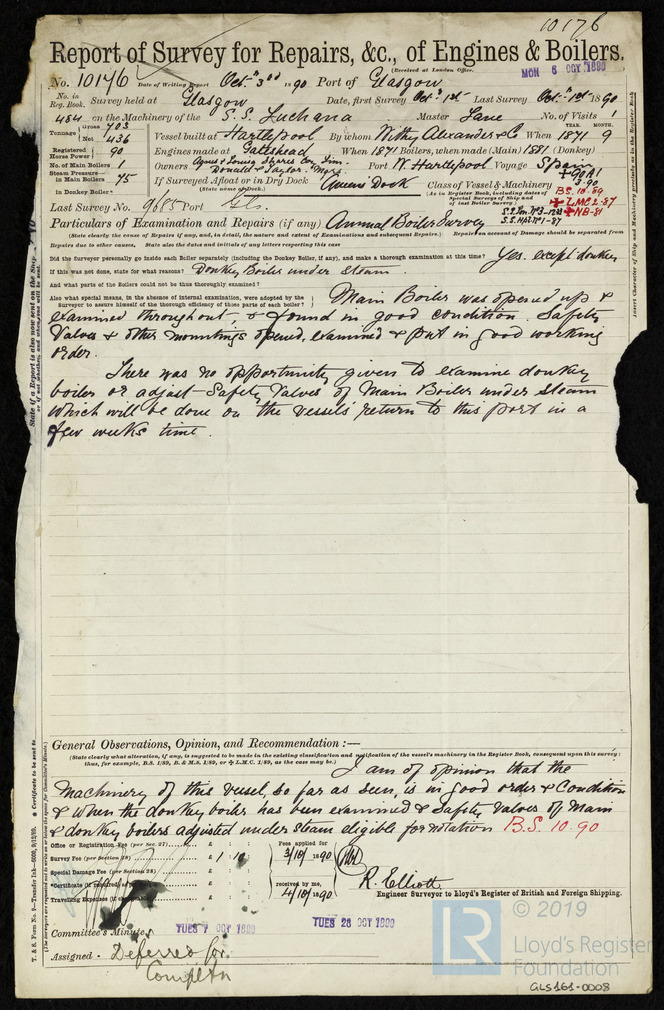 10176
Report of Survey for Repairs, &c., of Engines & Boilers.
(Received at London Office,
No. 10176 Date of Writing Report Oct. 3rd 1890 Port of Glasgow MON 6 OCT 1890
No. in Reg. Book. Survey held at Glasgow Date, first Survey Oct. 1st Last Survey Oct. 1st 1890
484 on the Machinery of the S.S. Luchana Master Lane No. of Visits 1
Tonnage Gross 703 Net 436 Vessel built at Hartlepool By whom Withy Alexander & Co When 1871 YEAR. MONTH. 9
Registered Horse Power 90 Engines made at Gateshead When 1871 Boilers, when made (Main) 1881 (Donkey)
No. of Main Boilers 1 Owners Donald & Taylor Port W. Hartlepool Voyage Spain
Steam Pressure in Main Boilers 75 If Surveyed Afloat or in Dry Dock Queen's Dock Class of Vessel & Machinery +90A1
(State name of Dock.) (As in Register Book, including dates of Special Surveys of Ship and of last Boiler Survey.) 3.90
in Donkey Boiler B.S. 10.89
+LMC 2-87
+NB-81
Last Survey No. 9685 Port Gls.
Particulars of Examination and Repairs (if any) Annual Boiler Survey Repairs on account of Damage should be separated from
(State clearly the cause of Repairs if any, and, in detail, the nature and extent of Examinations and subsequent Repairs.)
Repairs due to other causes, State also the dates and initials of any letters respecting this case
Did the Surveyor personally go inside each Boiler separately (including the Donkey Boiler, if any), and make a thorough examination at this time? Yes. except donkey
If this was not done, state for what reasons? Donkey Boiler under steam
And what parts of the Boilers could not be thus thoroughly examined?
Also what special means, in the absence of internal examination, were adopted by the Surveyor to assure himself of the thorough efficiency of those parts of each boiler? Main Boiler was opened up &
examined throughout, & found in good condition. Safety
Valves & other mountings opened, examined & put in good working
order.
There was no opportunity given to examine donkey
boiler or adjust Safety Valves of Main Boiler under steam
which will be done on the vessels return to this port in a
few weeks time.
General Observations, Opinion, and Recommendation :—
(State clearly what alteration, if any, is suggested to be made in the existing classification and notification of the vessel's machinery in the Register Book, consequent upon this survey:
thus, for example, B.S. 1/89, B. & M.S. 1/89, or + L.M.C. 1/89, as the case may be.)
I am of opinion that the
Machinery of this vessel, so far as seen, is in good order & Condition
& when the donkey boiler has been examined & Safety Valves of Main
& donkey boilers adjusted under steam eligible for notation B.S. 10.90
Office or Registration Fee (per Sec. 27) £ : : Fees applied for
Survey Fee (per Section 28) £ 1 : 1 : 3/10/1890
Special Damage Fee (per Section 28) £ : :
*Certificate (if required) £ : : received by me,
Travelling Expenses (if any) £ : : 4/10/1890
R. Elliott
Engineer Surveyor to Lloyd's Register of British and Foreign Shipping.
Committee's Minute TUES 7 OCT 1890 TUES 28 OCT 1890
Assigned - Deferred for
Completn
State if a Report is also now sent on the Ship
or if not whether, and when, one will be sent.
* Certificate to be sent to
T. & S. Form No. 9—Transfer Ink—6000, 9/12/89.
(The Surveyors are requested not to write on or below the space for Committee's Minute.)
Insert Character of Ship and Machinery precisely as in the Register Book
© 2019
LR Lloyd's Register
Foundation
GLS161-0008